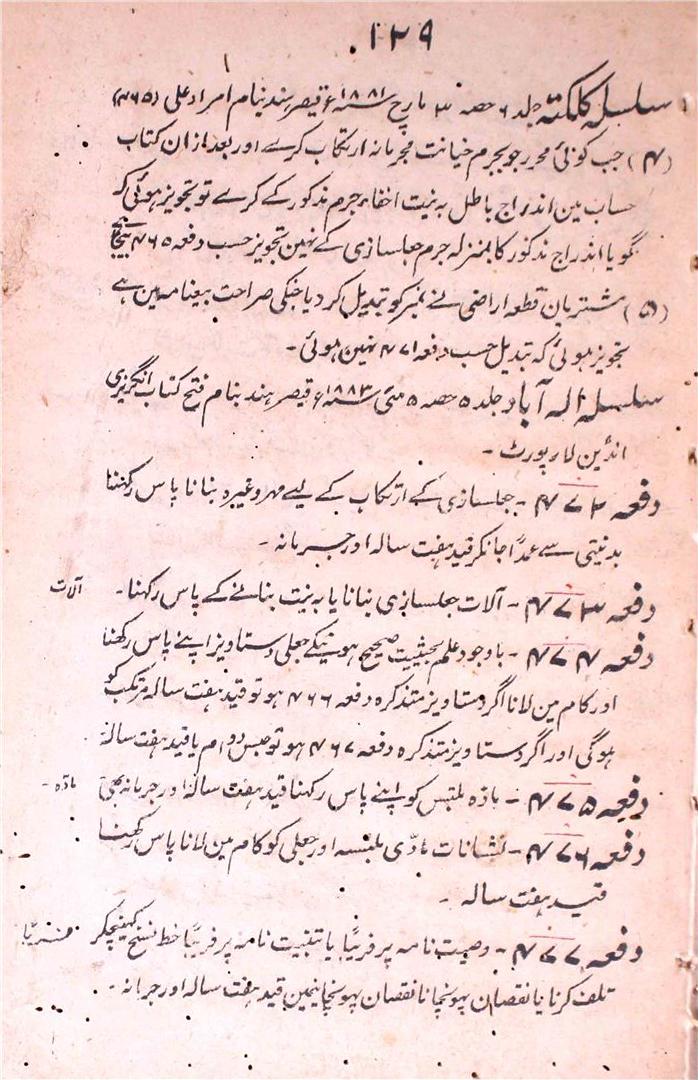 ۱۲۹
سلسلہ کلکتہ جلد ۶ حصہ ۳ مارچ سنہ ۱۸۸۱ء قیصر ہند بنام امراد علی (۴۶۵)
(۴) جب کوئی محرر جو بجرم خیانت مجرمانہ ارتکاب کرے اور بعد ازان کتاب
حساب مین اندراج باطل بہ نیت اخفاء جرم مذکور کے کرے تو تجویز ہوئی کہ
گویا اندراج مذکور کا بمنزلہ جرم جعلسازی کے نہین تجویز حسب دفعہ ۴۶۵
(۵) مشتریان قطعہ اراضی نے نمبر کو تبدیل کر دیا جنکی صراحت بیعنامہ مین ہے
تجویز ہوئی کہ تبدیل حسب دفعہ ۴۷۱ نہین ہوئی ۔
سلسلہ الہ آباد جلد ۵ حصہ ۵ مئی سنہ ۱۸۸۳ء قیصر ہند بنام فتح کتاب انگریزی
انڈین لا رپورٹ ۔
دفعہ ۴۷۲ ۔ جعلسازی کے ارتکاب کے لیے مہر وغیرہ بنانا پاس رکھنا
بدنیتی سے عمداً جانکر قید ہفت سالہ اور جرمانہ ۔
دفعہ ۴۷۳ ۔ آلات جعلسازی بنانا یا بہ نیت بنانے کے پاس رکھنا ۔ آلات
دفعہ ۴۷۴ ۔ باوجود علم بحیثیت صحیح ہونیکے جعلی دستاویز اپنے پاس رکھنا
اور کام مین لانا اگر دستاویز متذکرہ دفعہ ۴۶۶ ہو تو قید ہفت سالہ مرتکب کو
ہوگی اور اگر دستاویز متذکرہ دفعہ ۴۶۷ ہو تو حبس دوام یا قید ہفت سالہ
دفعہ ۴۷۵ ۔ مادہ ملتبس کو اپنے پاس رکھنا قید ہفت سالہ اور جرمانہ بھی مادہ ۔
دفعہ ۴۷۶ ۔ نشانات مادّی ملتبسہ اور جعلی کو کام مین لانا پاس رکھنا
قید ہفت سالہ ۔
دفعہ ۴۷۷ ۔ وصیت نامہ پر فریباً یا تبنیت نامہ پر فریباً خط نسخ کھینچکر فریباً
تلف کرنا یا نقصان پہونچانا نقصان پہونچانیمین قید ہفت سالہ اور جرمانہ ۔